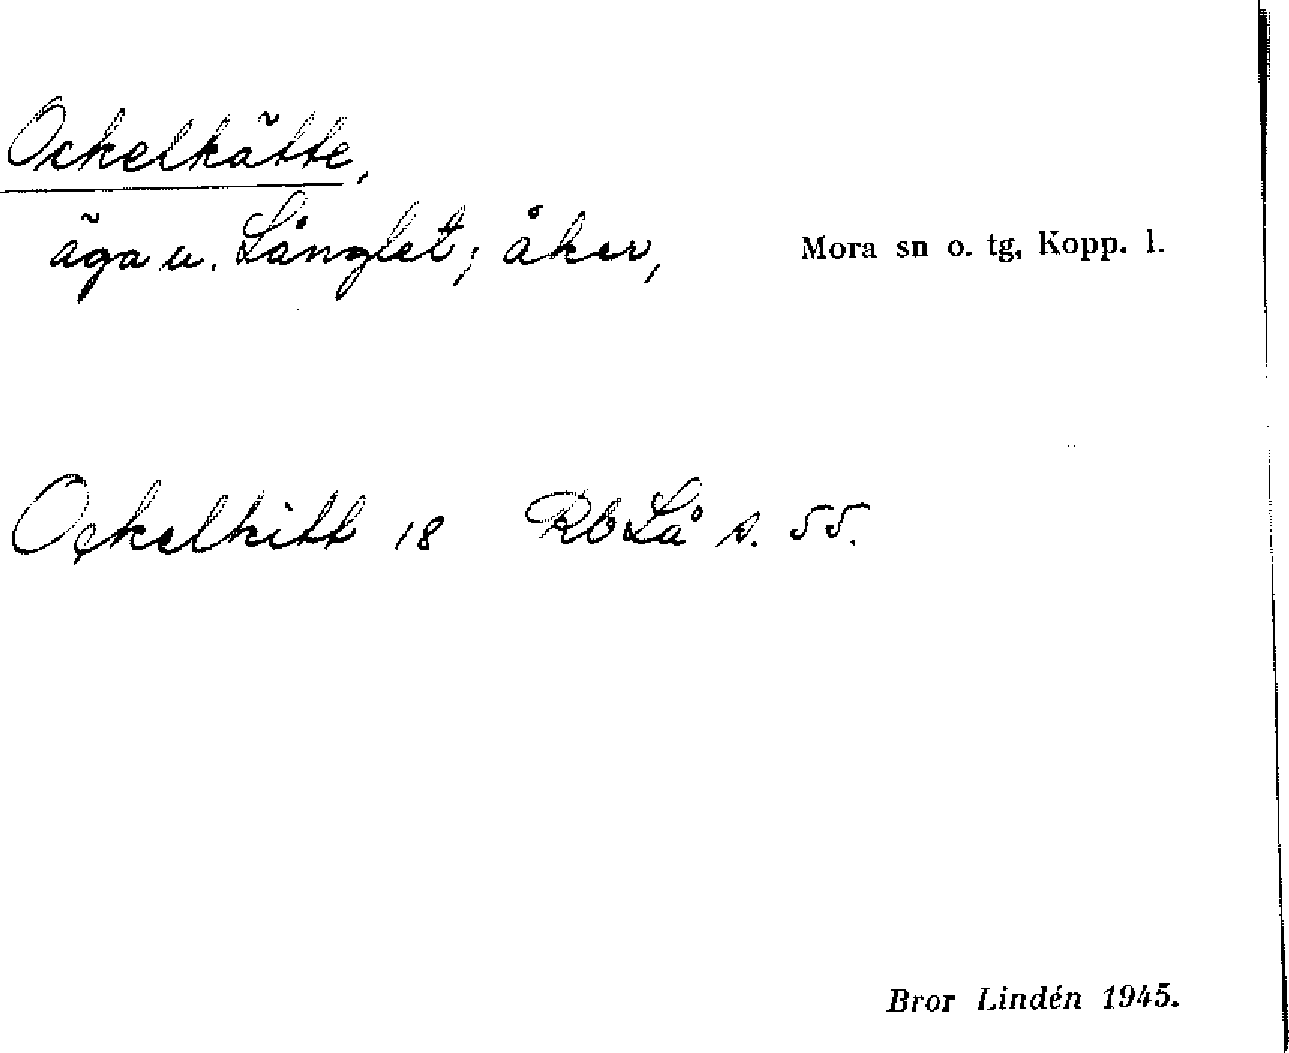 Ockelkätte,
äga u. Långlet; åker, Mora sn o. tg, Kopp. l.
Ockelkitt 18 Rb Lå s. 55.
Bror Lindén 1945.